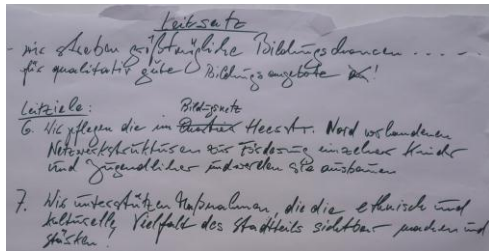 Leitsatz
- wir streben größtmögliche Bildungschancen .....
für qualitativ gute Bildungsangebote !
Leitziele: Bildungsnetz
6. Wir pflegen die im Heerstr. Nord vorhandenen
Netzwerkstrukturen zur Förderung einzelner Kinder
und Jugendlicher und werden sie ausbauen
7. Wir unterstützen Maßnahmen, die die ethnische und
kulturelle Vielfalt des Stadtteils sichtbar machen und
stärken!